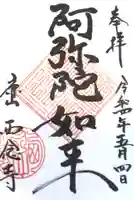 奉拝
令和二年五月四日
阿弥陀如来
西念寺